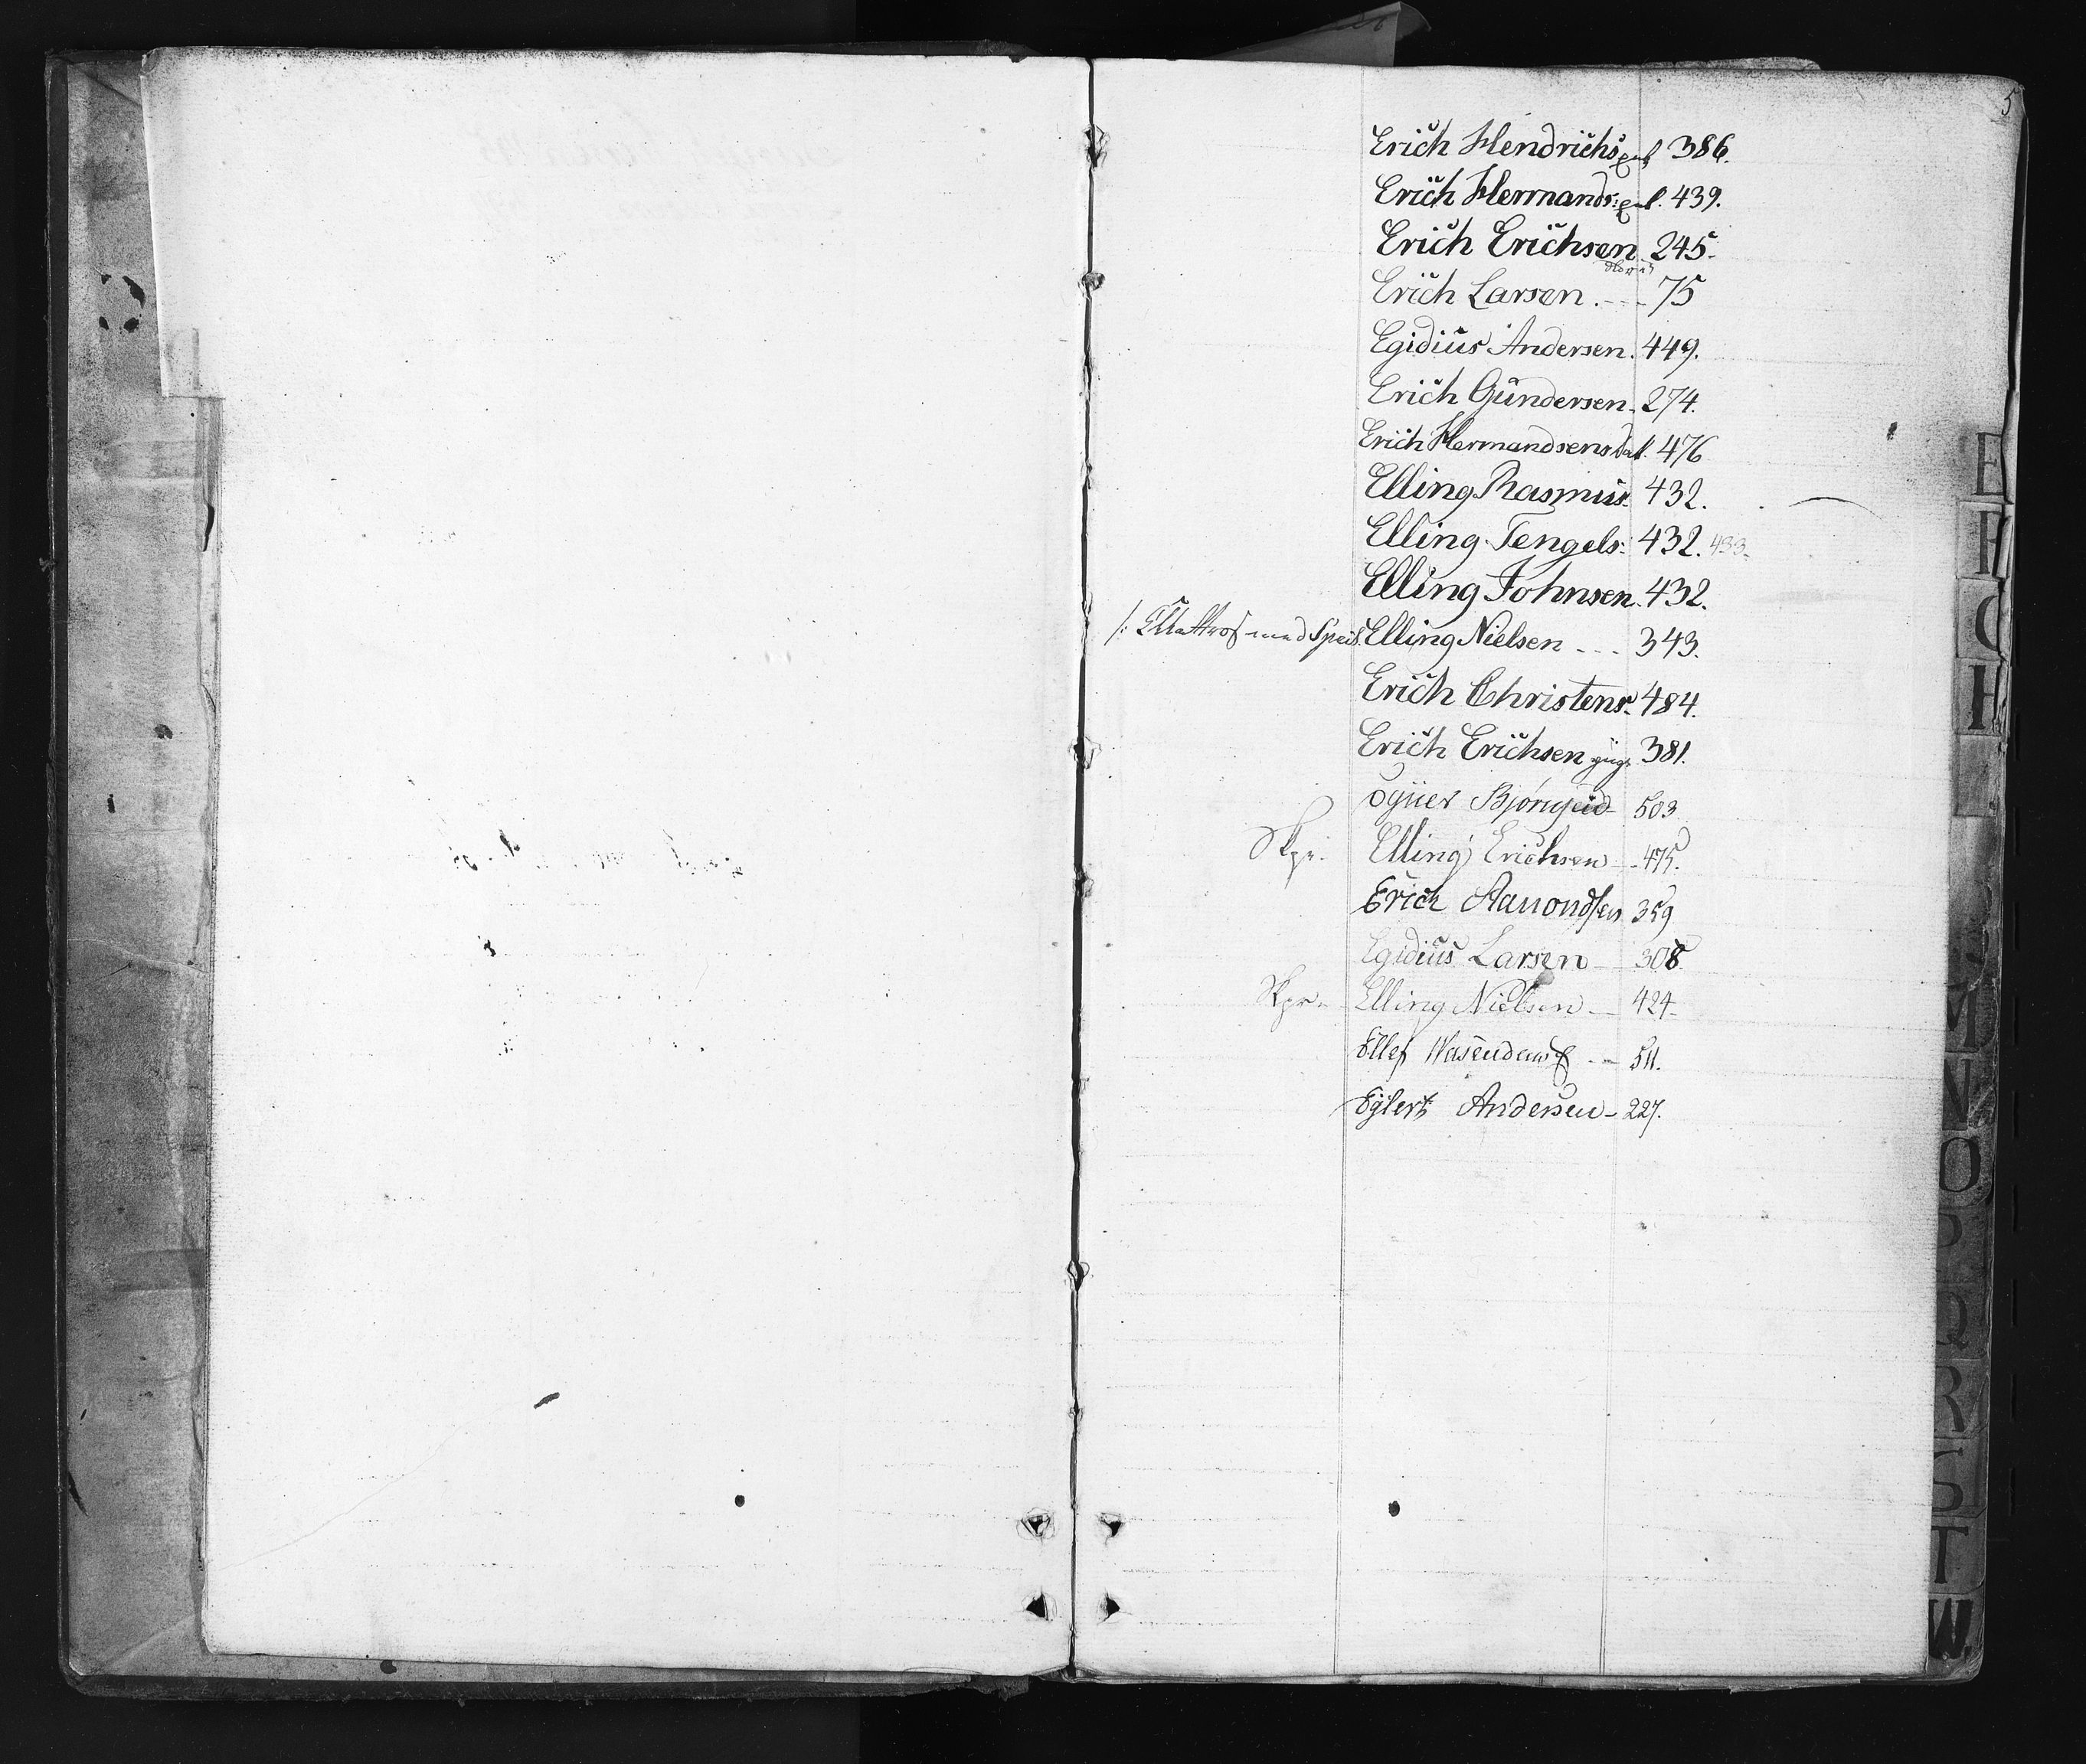 5
Erich Hendrichs 386.
Erich Hermands: 439.
Erich Erichsen 245-
Erich Larsen . --- 75
Egidius Andersen. 449.
Erich Gundersen. 274.
Erich Hermandsens 476
Elling Rasmus. 432.
Elling Tengels: 432. 433-
Elling Johnsen. 432.
Elling Nielsen --- 343.
Erich Christens. 484.
Erich Erichsen 381.
503
Skpr. Elling Erichsen - 475.
Erich Aamondsen 359
Egidius Larsen — 308.
Skpr. Elling Nielsen — 424-
Ellef -- 511.
Eylert Andersen - 227.
E
F
G
H
M
N
O
P
Q
R
S
T
W.